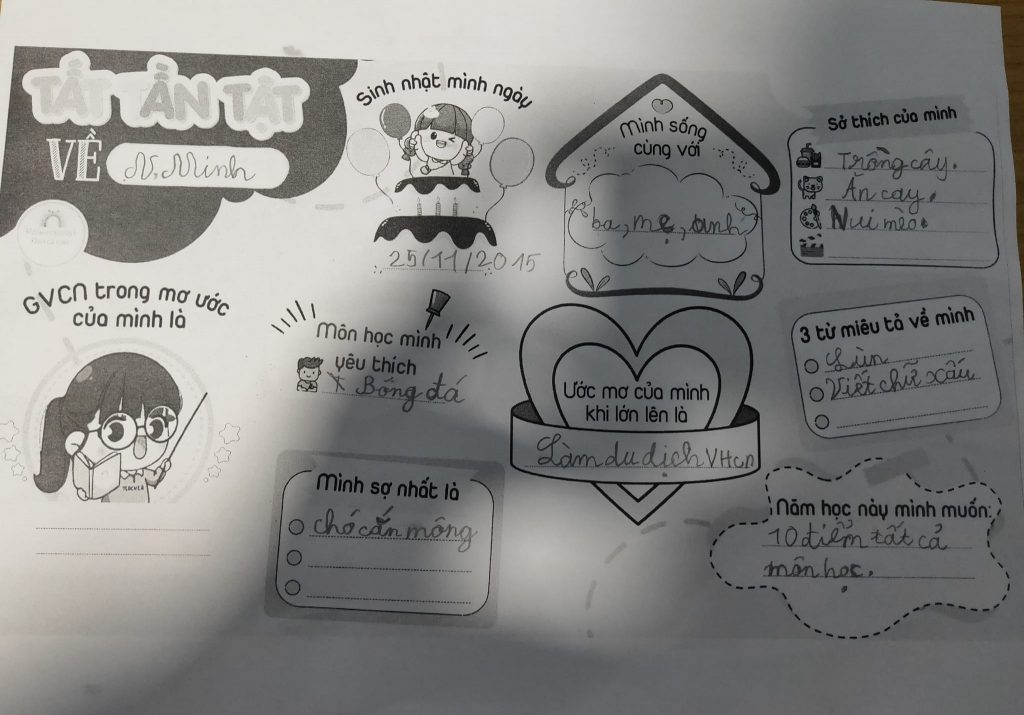 TẤT TẦN TẬT
VỀ N. Minh
Sinh nhật mình ngày
25/11/2015
Mình sống
cùng với
ba, mẹ, anh
Sở thích của mình
Trồng cây.
Ăn cay.
Nui mèo.
GVCN trong mơ ước
của mình là
TEACHER
Môn học mình
yêu thích
Bóng đá
Ước mơ của mình
khi lớn lên là
Làm du dịch VHCn
3 từ miêu tả về mình
Lùn
Viết chữ xấu
Mình sợ nhất là
chó cắn mông
Năm học này mình muốn:
10 điểm tất cả
môn học.